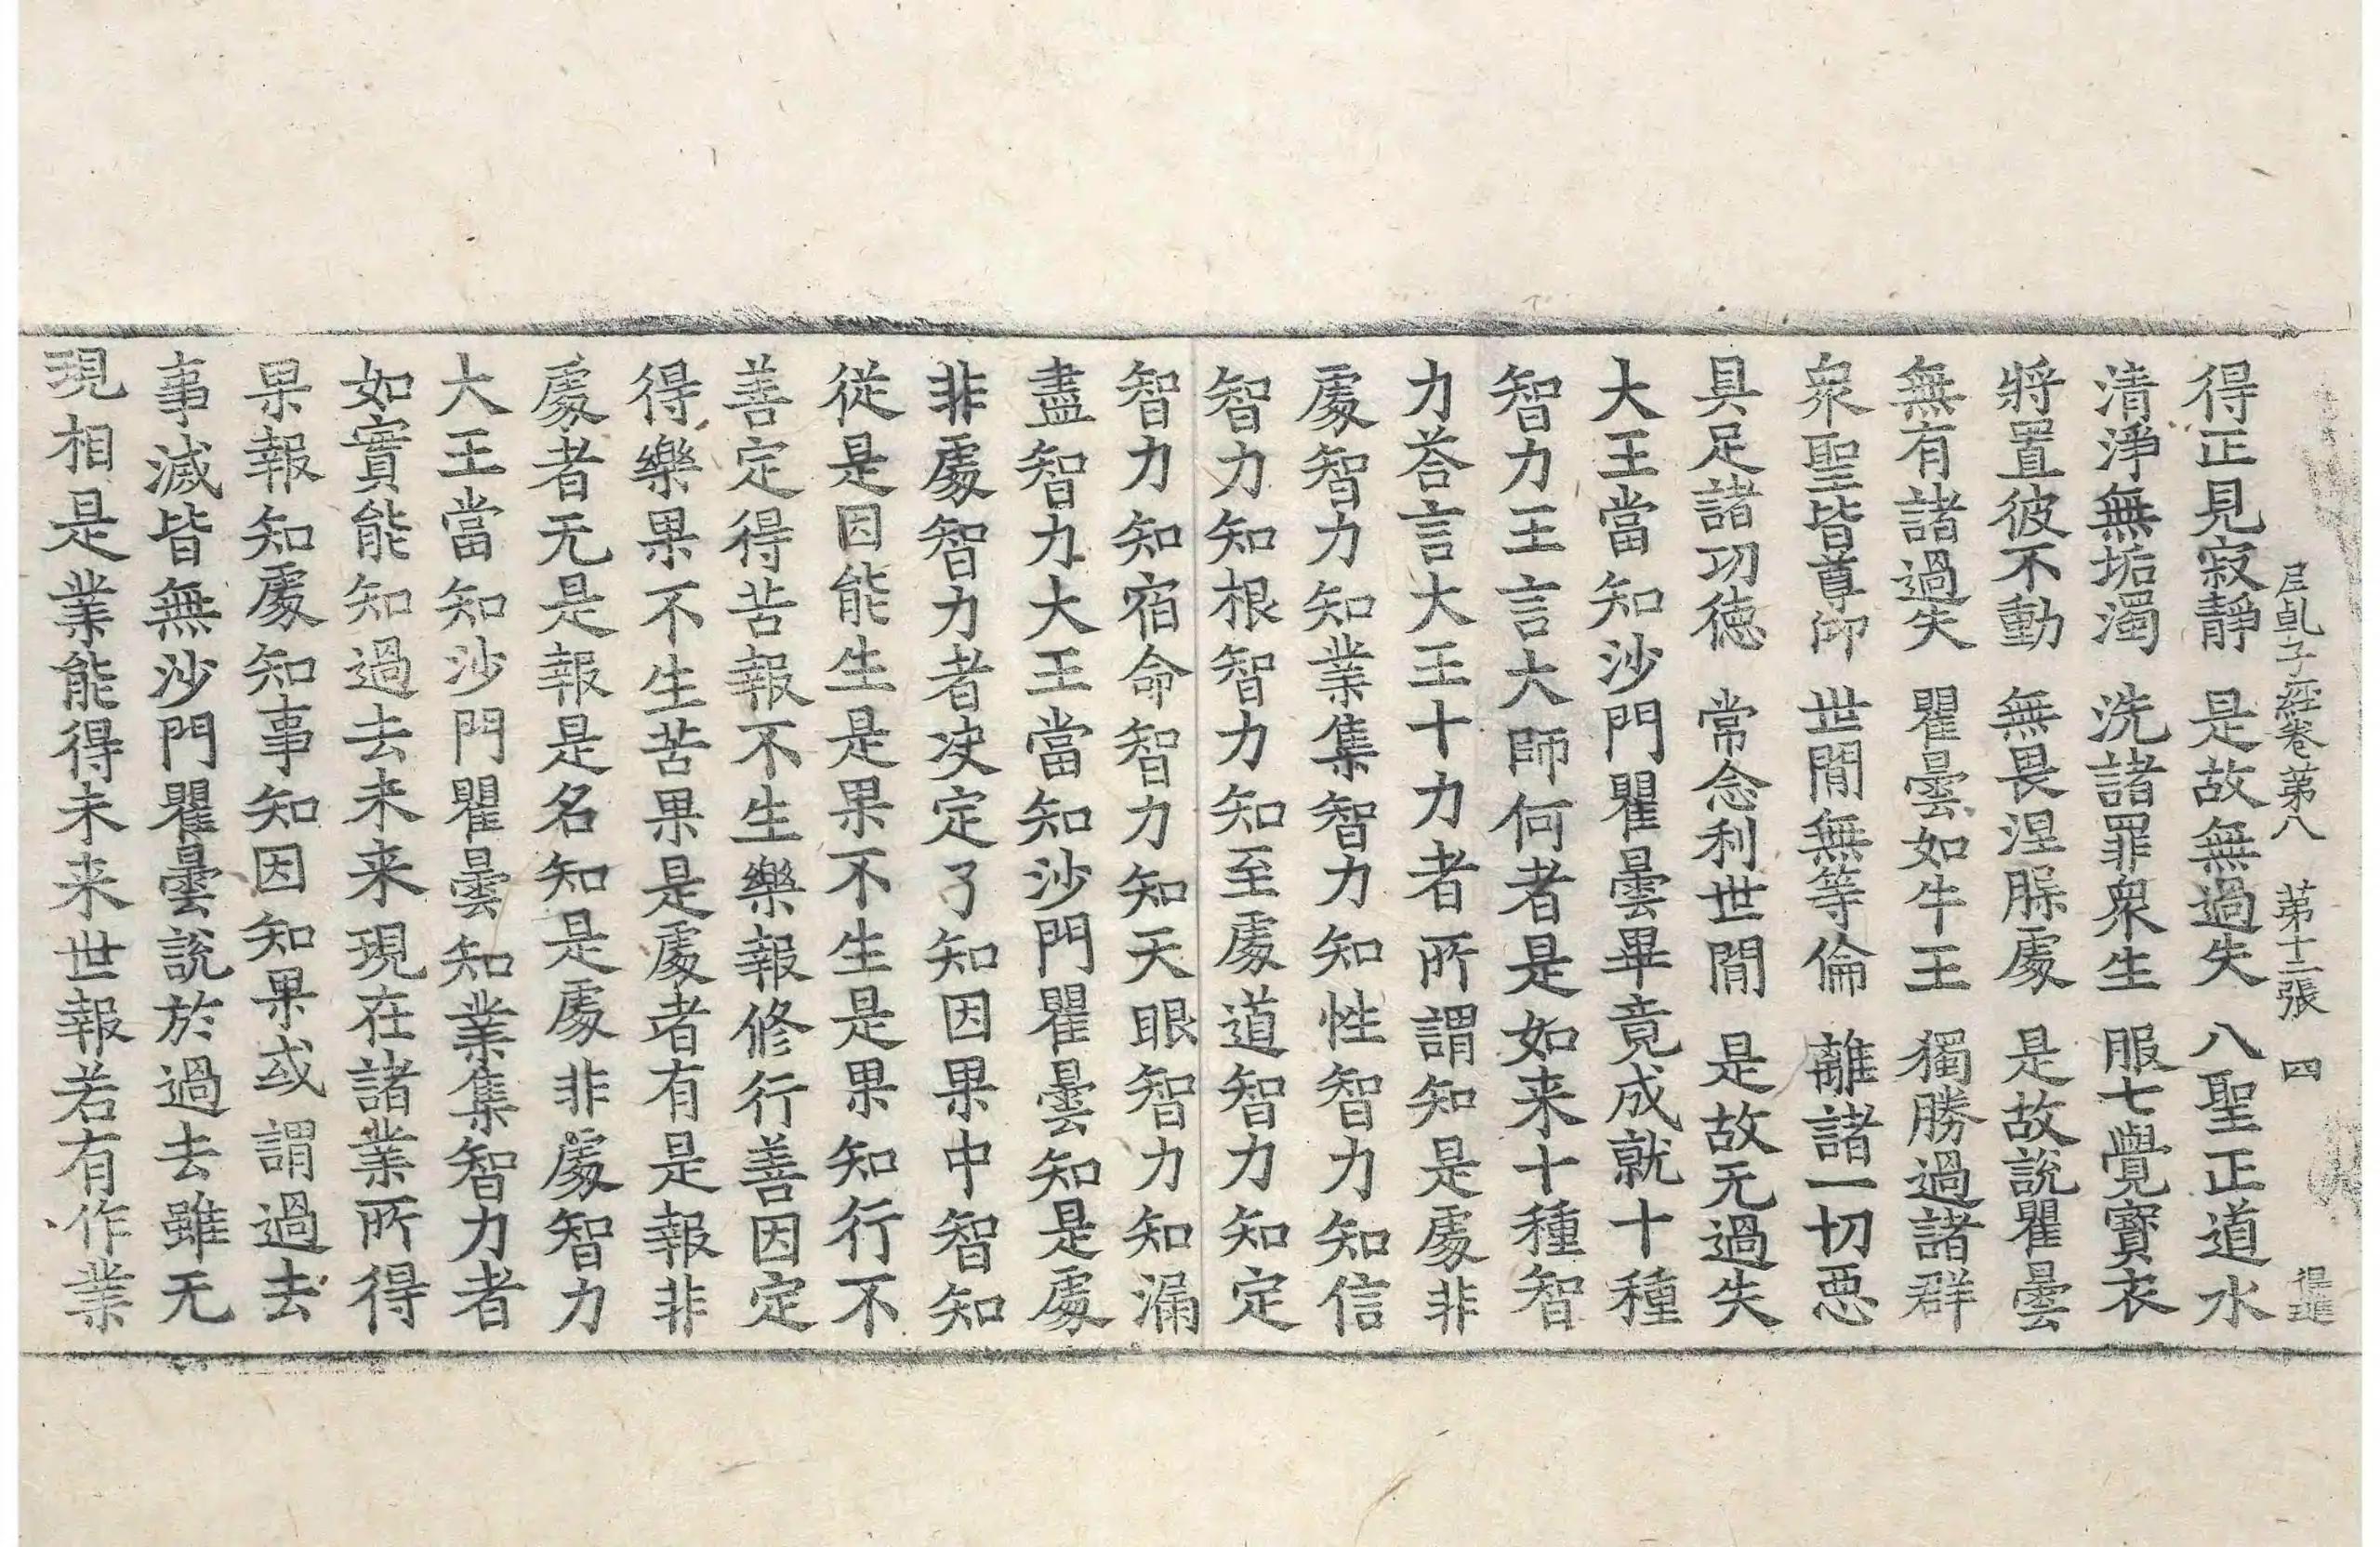 尼乹子經卷苐八　苐十二張　四　得進
得正見寂靜　是故無過失　八聖正道水
清淨無垢濁　洗諸罪衆生　服七覺寶衣
將置彼不動　無畏涅脲處　是故說瞿曇
無有諸過失　瞿曇如牛王　獨勝過諸群
衆聖皆尊仰　世閒無等倫　離諸一切惡
具足諸功德　常念利世閒　是故无過失
大王當知沙門瞿曇畢竟成就十種
智力王言大師何者是如来十種智
力荅言大王十力者所謂知是處非
處智力知業集智力知性智力知信
智力知根智力知至處道智力知定
智力知宿命智力知天眼智力知漏
盡智力大王當知沙門瞿曇知是處
非處智力者决定了知因果中智知
從是因能生是果不生是果知行不
善定得苦報不生樂報修行善因定
得樂果不生苦果是處者有是報非
處者无是報是名知是處非處智力
大王當知沙門瞿曇知業集智力者
如實能知過去未来現在諸業所得
果報知處知事知因知果或謂過去
事滅皆無沙門瞿曇說於過去雖无
現相是業能得未来世報若有作業